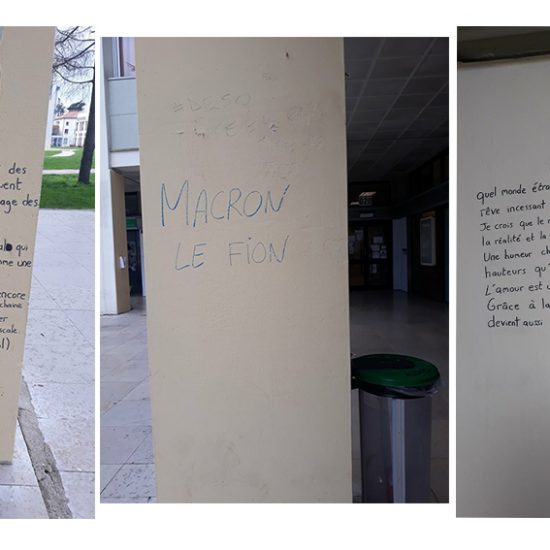 des
vent
age des
qui
ome une
encore
chaine
er
scale.
MACRON
LE FION
Quel monde étra
rêve incessant
Je crois que le
la réalité et la
Une humeur ch
hauteurs qu'
L'amour est u
Grâce à la
devient aussi